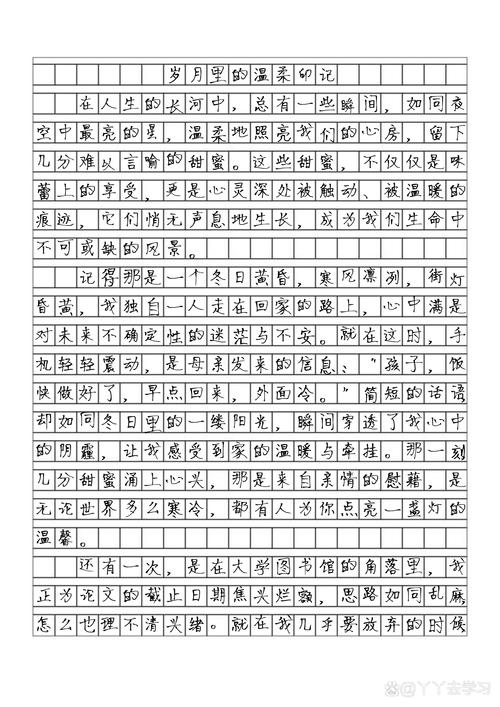 岁月里的温柔印记
在人生的长河中，总有一些瞬间，如同夜
空中最亮的星，温柔地照亮我们的心房，留下
几分难以言喻的甜蜜。这些甜蜜，不仅仅是味
蕾上的享受，更是心灵深处被触动、被温暖的
痕迹，它们悄无声息地生长，成为我们生命中
不可或缺的风景。
记得那是一个冬日黄昏，寒风凛冽，街灯
昏黄，我独自一人走在回家的路上，心中满是
对未来不确定性的迷茫与不安。就在这时，手
机轻轻震动，是母亲发来的信息、“孩子，饭
快做好了，早点回来，外面冷。”简短的话语
却如同冬日里的一缕阳光，瞬间穿透了我心中
的阴霾，让我感受到家的温暖与牵挂。那一刻
几分甜蜜涌上心头，那是来自亲情的慰藉，是
无论世界多么寒冷，都有人为你点亮一盏灯的
温馨。
还有一次，是在大学图书馆的角落里，我
正为论文的截止日期焦头烂额，思路如同乱麻
怎么也理不清头绪。就在我几乎要放弃的时候
@丫丫去学习